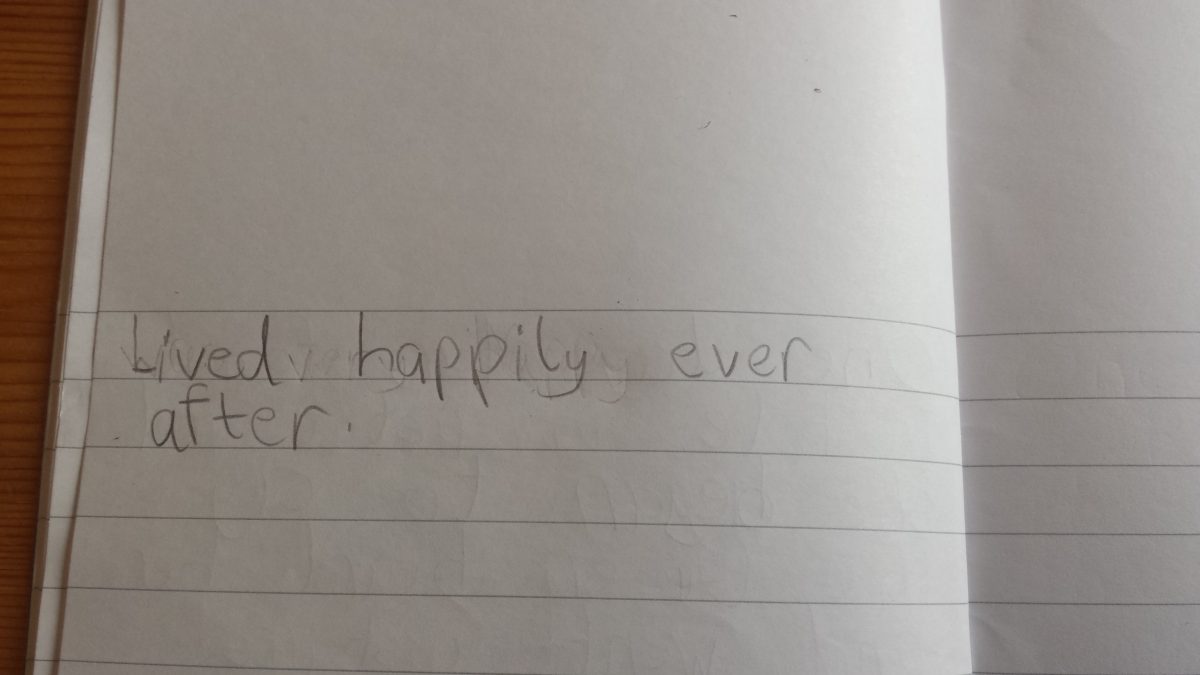 Lived happily ever
after.